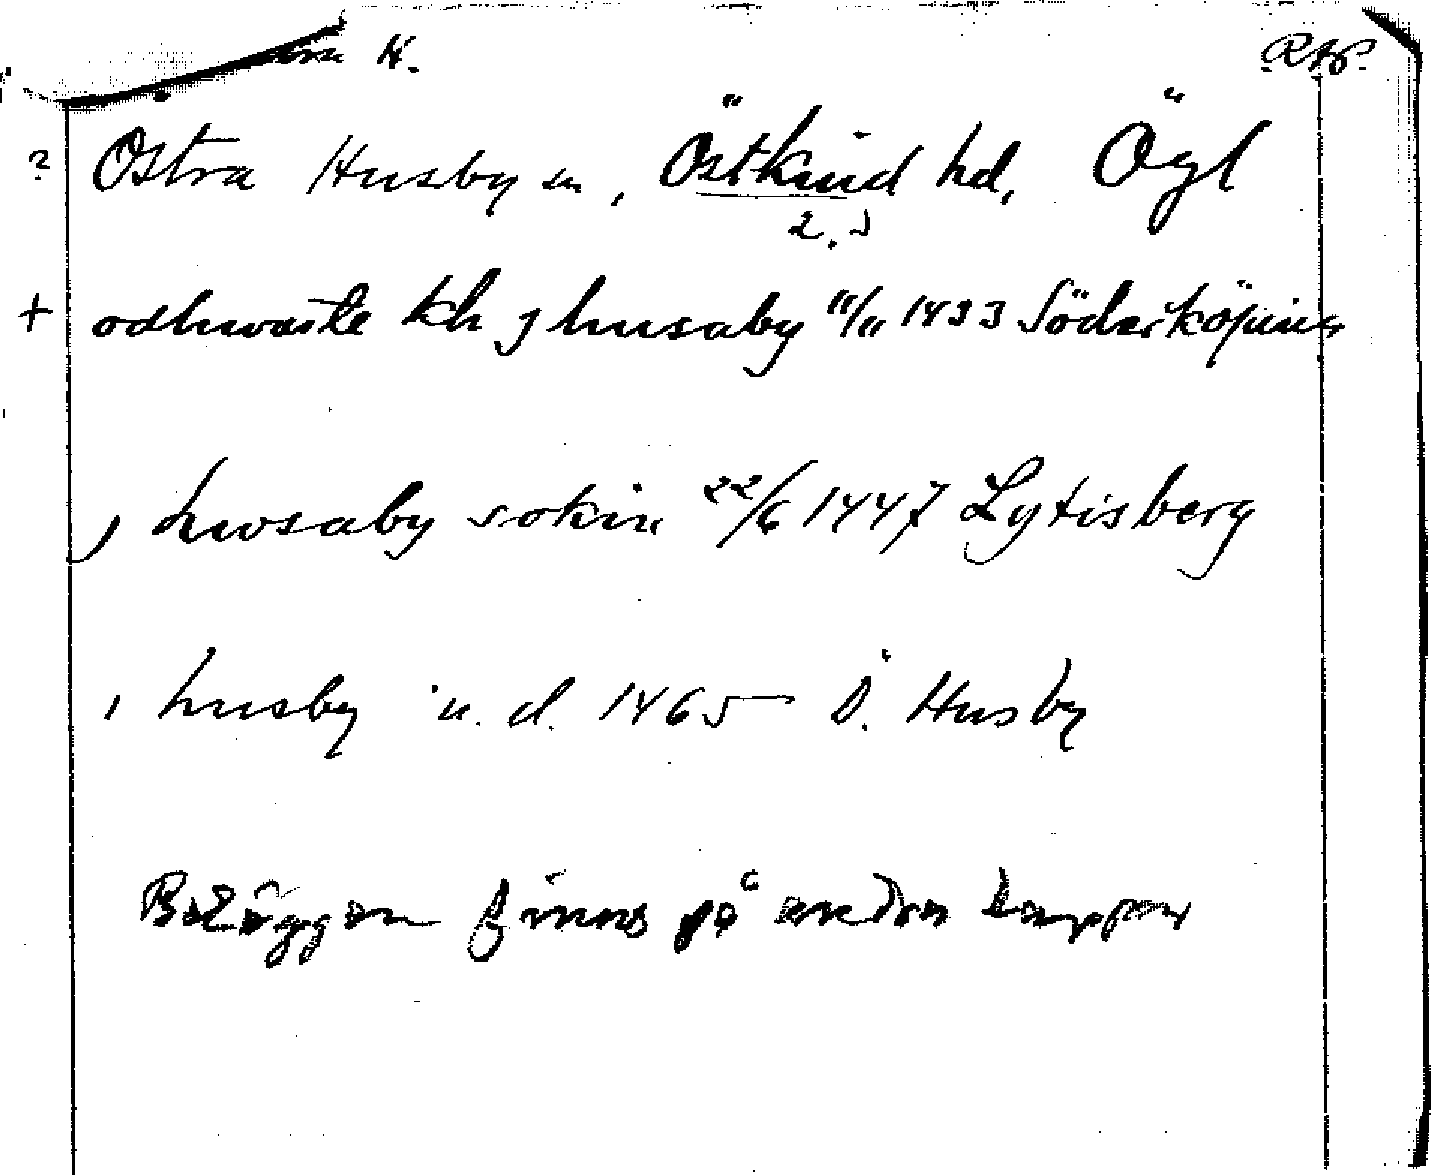 H. RAP.
? Östra Husby sn, Östkind hd, Ögl
2.
+ odhwaste kh j husaby 11/11 1433 Söderköping
j hwsaby sokin 22/6 1447 Lytisberg
i husby u.d. 1465 Ö. Husby
Beläggen finns på andra lappar